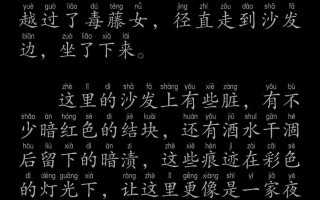 yuè guò le dú téng nǚ jìng zhí zǒu dào shā fā
越过了毒藤女，径直走到沙发
biān zuò liǎo xià lái
边，坐了下来。
zhè lǐ de shā fā shàng yǒu xiē zàng yǒu bù
这里的沙发上有些脏，有不
shǎo àn hóng sè de jié kuài huán yǒu jiǔ shuǐ gān hé
少暗红色的结块，还有酒水干涸
hòu liú xià de àn zì zhè xiē hén jì zài cǎi sè
后留下的暗渍，这些痕迹在彩色
de dēng guāng xià ràng zhè lǐ gèng xiàng shì yī jiā yè
的灯光下，让这里更像是一家夜